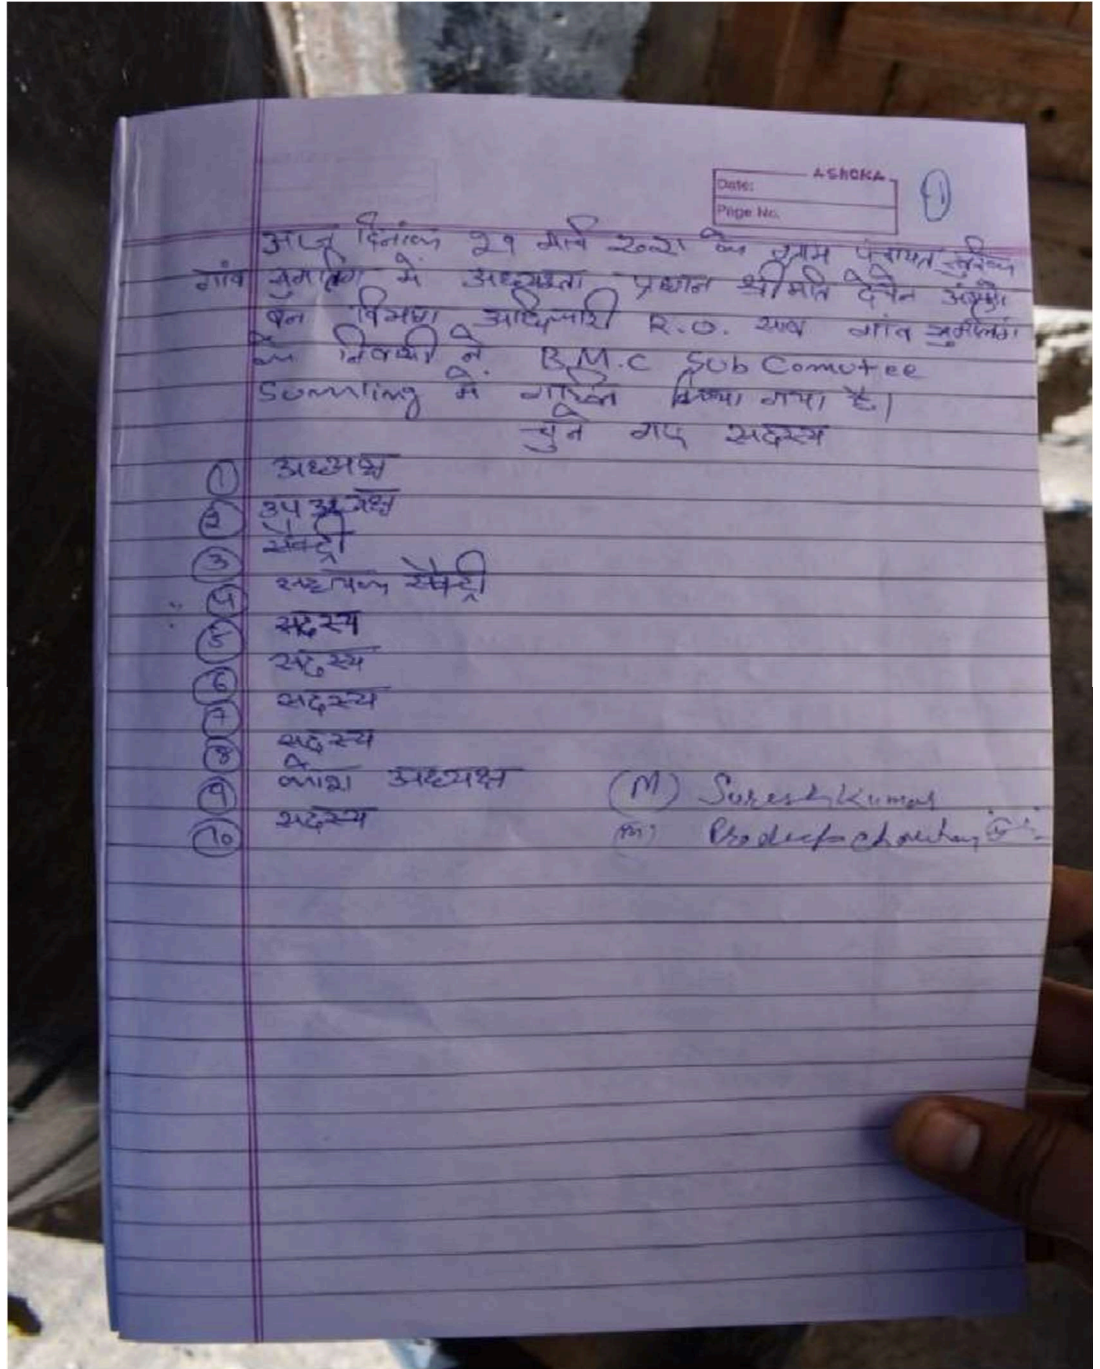 ASHOKA
Date:
Page No.
1
आज दिनांक 29 मार्च 2021 के ग्राम पंचायत
गांव सुमलिंग में अध्यक्षता प्रधान श्रीमति देचेन अंगमो
वन विभाग अधिकारी R.O. साब गांव सुमलिंग
के निवासी ने B.M.C Sub Comutee
Sumling में गठित किया गया है।
चुने गए सदस्य
① अध्यक्ष
② उप अध्यक्ष
③ सैक्ट्री
④ सहायक सैक्ट्री
⑤ सदस्य
⑥ सदस्य
⑦ सदस्य
⑧ सदस्य
⑨ कोश अध्यक्ष (M) Suresh Kumar
⑩ सदस्य (M) Pradeep Chouhan